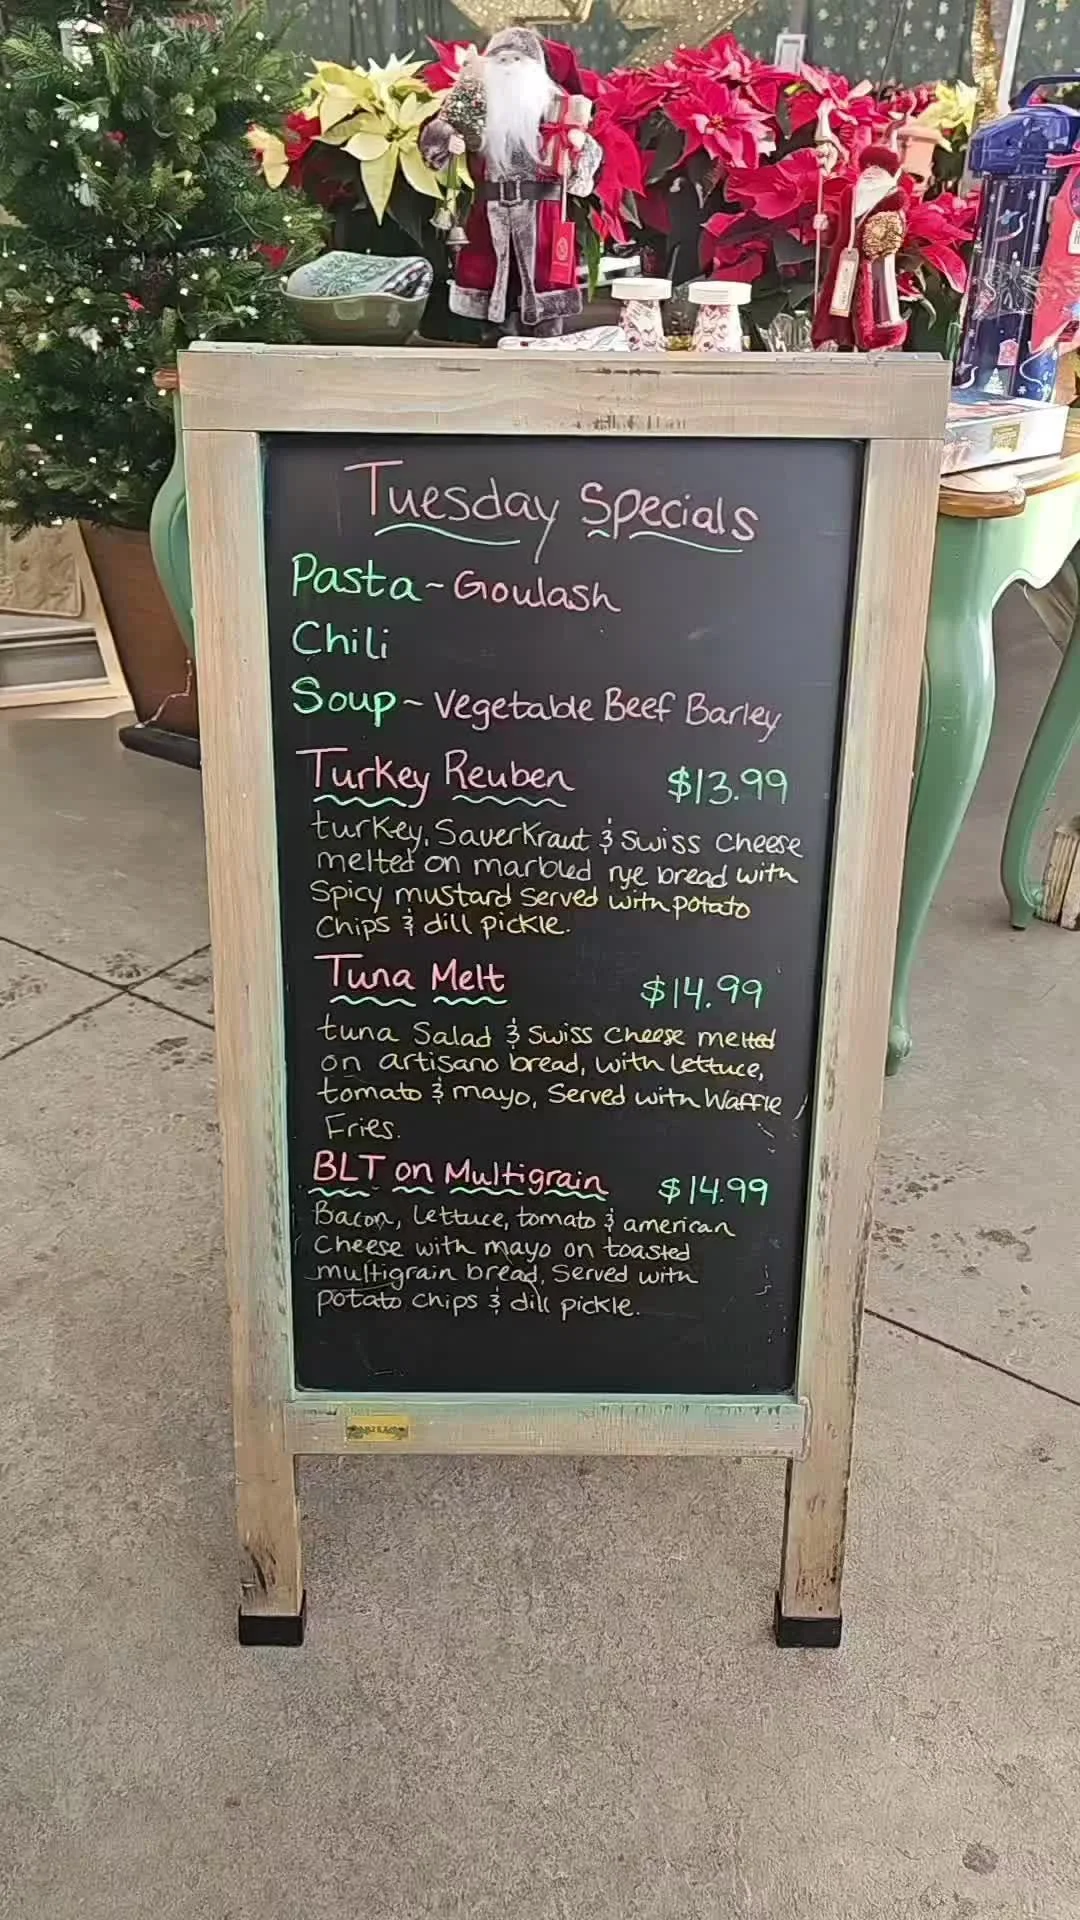 Tuesday Specials
Pasta ~ Goulash
Chili
Soup ~ Vegetable Beef Barley
Turkey Reuben $13.99
turkey, Sauerkraut & Swiss Cheese
melted on marbled rye bread with
Spicy mustard Served with potato
Chips & dill pickle.
Tuna Melt $14.99
tuna Salad & Swiss Cheese melted
on artisano bread, with lettuce,
tomato & mayo, Served with Waffle
Fries.
BLT on Multigrain $14.99
Bacon, Lettuce, tomato & american
Cheese with mayo on toasted
multigrain bread, Served with
potato chips & dill pickle.